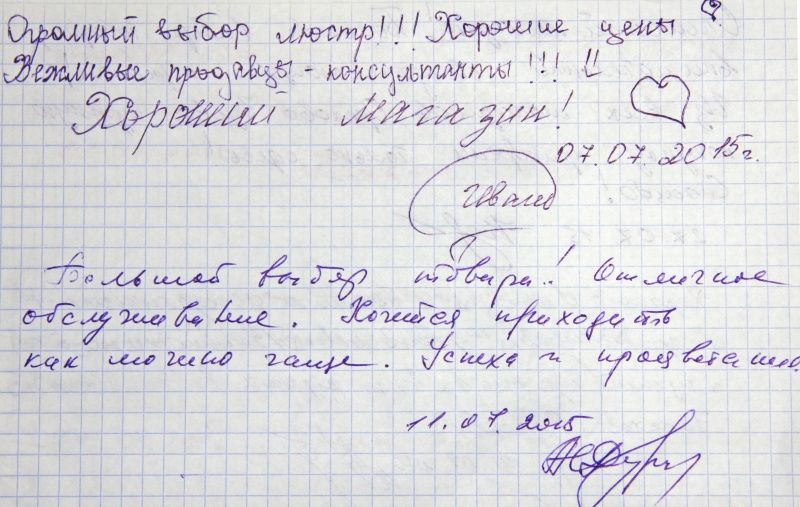 Огромный выбор люстр!!! Хорошие цены
Вежливые продавцы - консультанты!!!
Хороший магазин!
07.07.2015г.
Большой выбор товара! Отличное
обслуживание. Хочется приходить
как можно чаще. Успеха и процветания.
11.07.2015